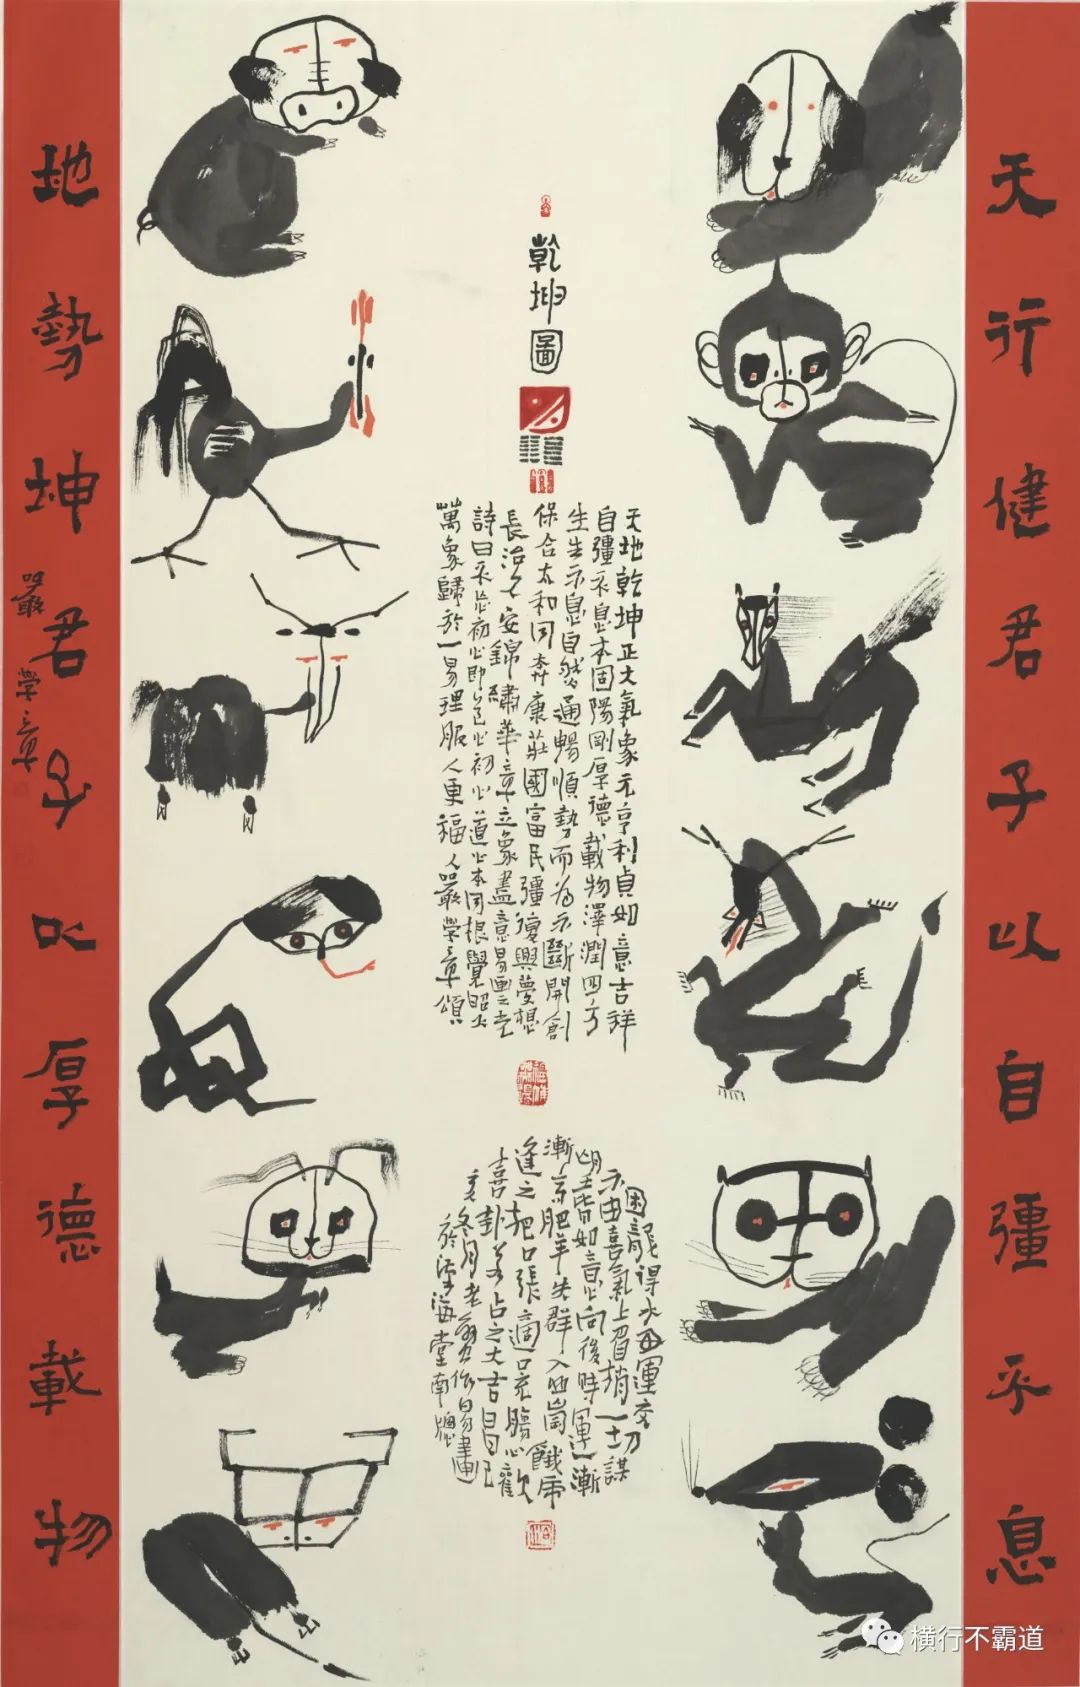 天行健君子以自彊不息
乾坤圖
天地乾坤正大氣象元亨利貞如意吉祥
自彊不息本固陽剛厚德載物澤潤四方
生生不息自然通暢順勢而為不斷開創
保合太和同奔康莊國富民彊復興夢想
長治久安錦繡華章立象盡意易畫之光
詩曰不忘初心即是心初心道心本同根覺昭大
萬象歸於一易理服人更福人嚴學章頌
困龍得水好運交
不由喜氣上眉梢一切謀
皆如意向後時運漸
漸高肥羊失群入山崗餓虎
逢之把口張適口充腸心歡
喜卦若占之大吉昌己
亥冬月老嚴作易畫
於 海堂南窗
地勢坤君子以厚德載物
嚴學章
横行不霸道